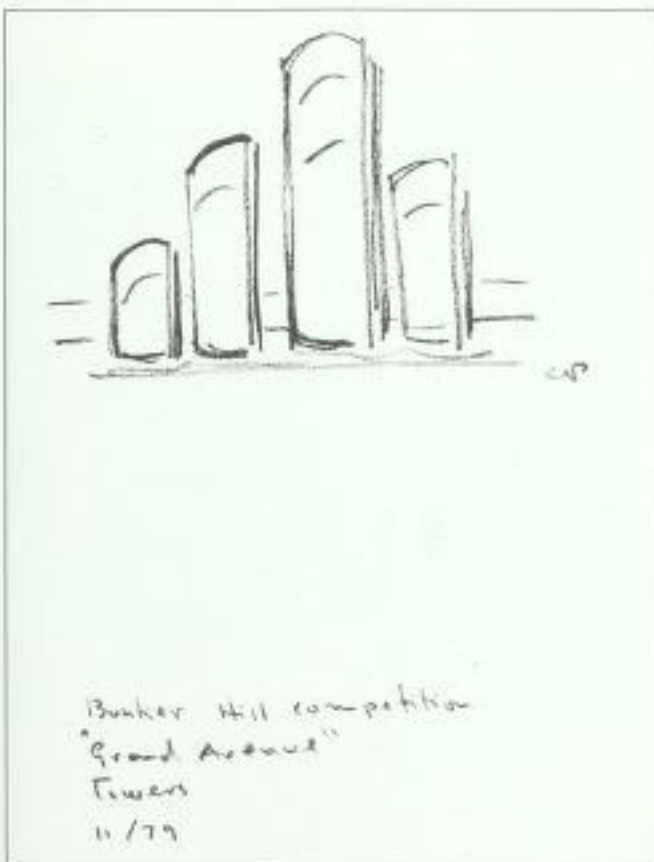 CP
Bunker Hill competition
"Grand Avenue"
Towers
11/79